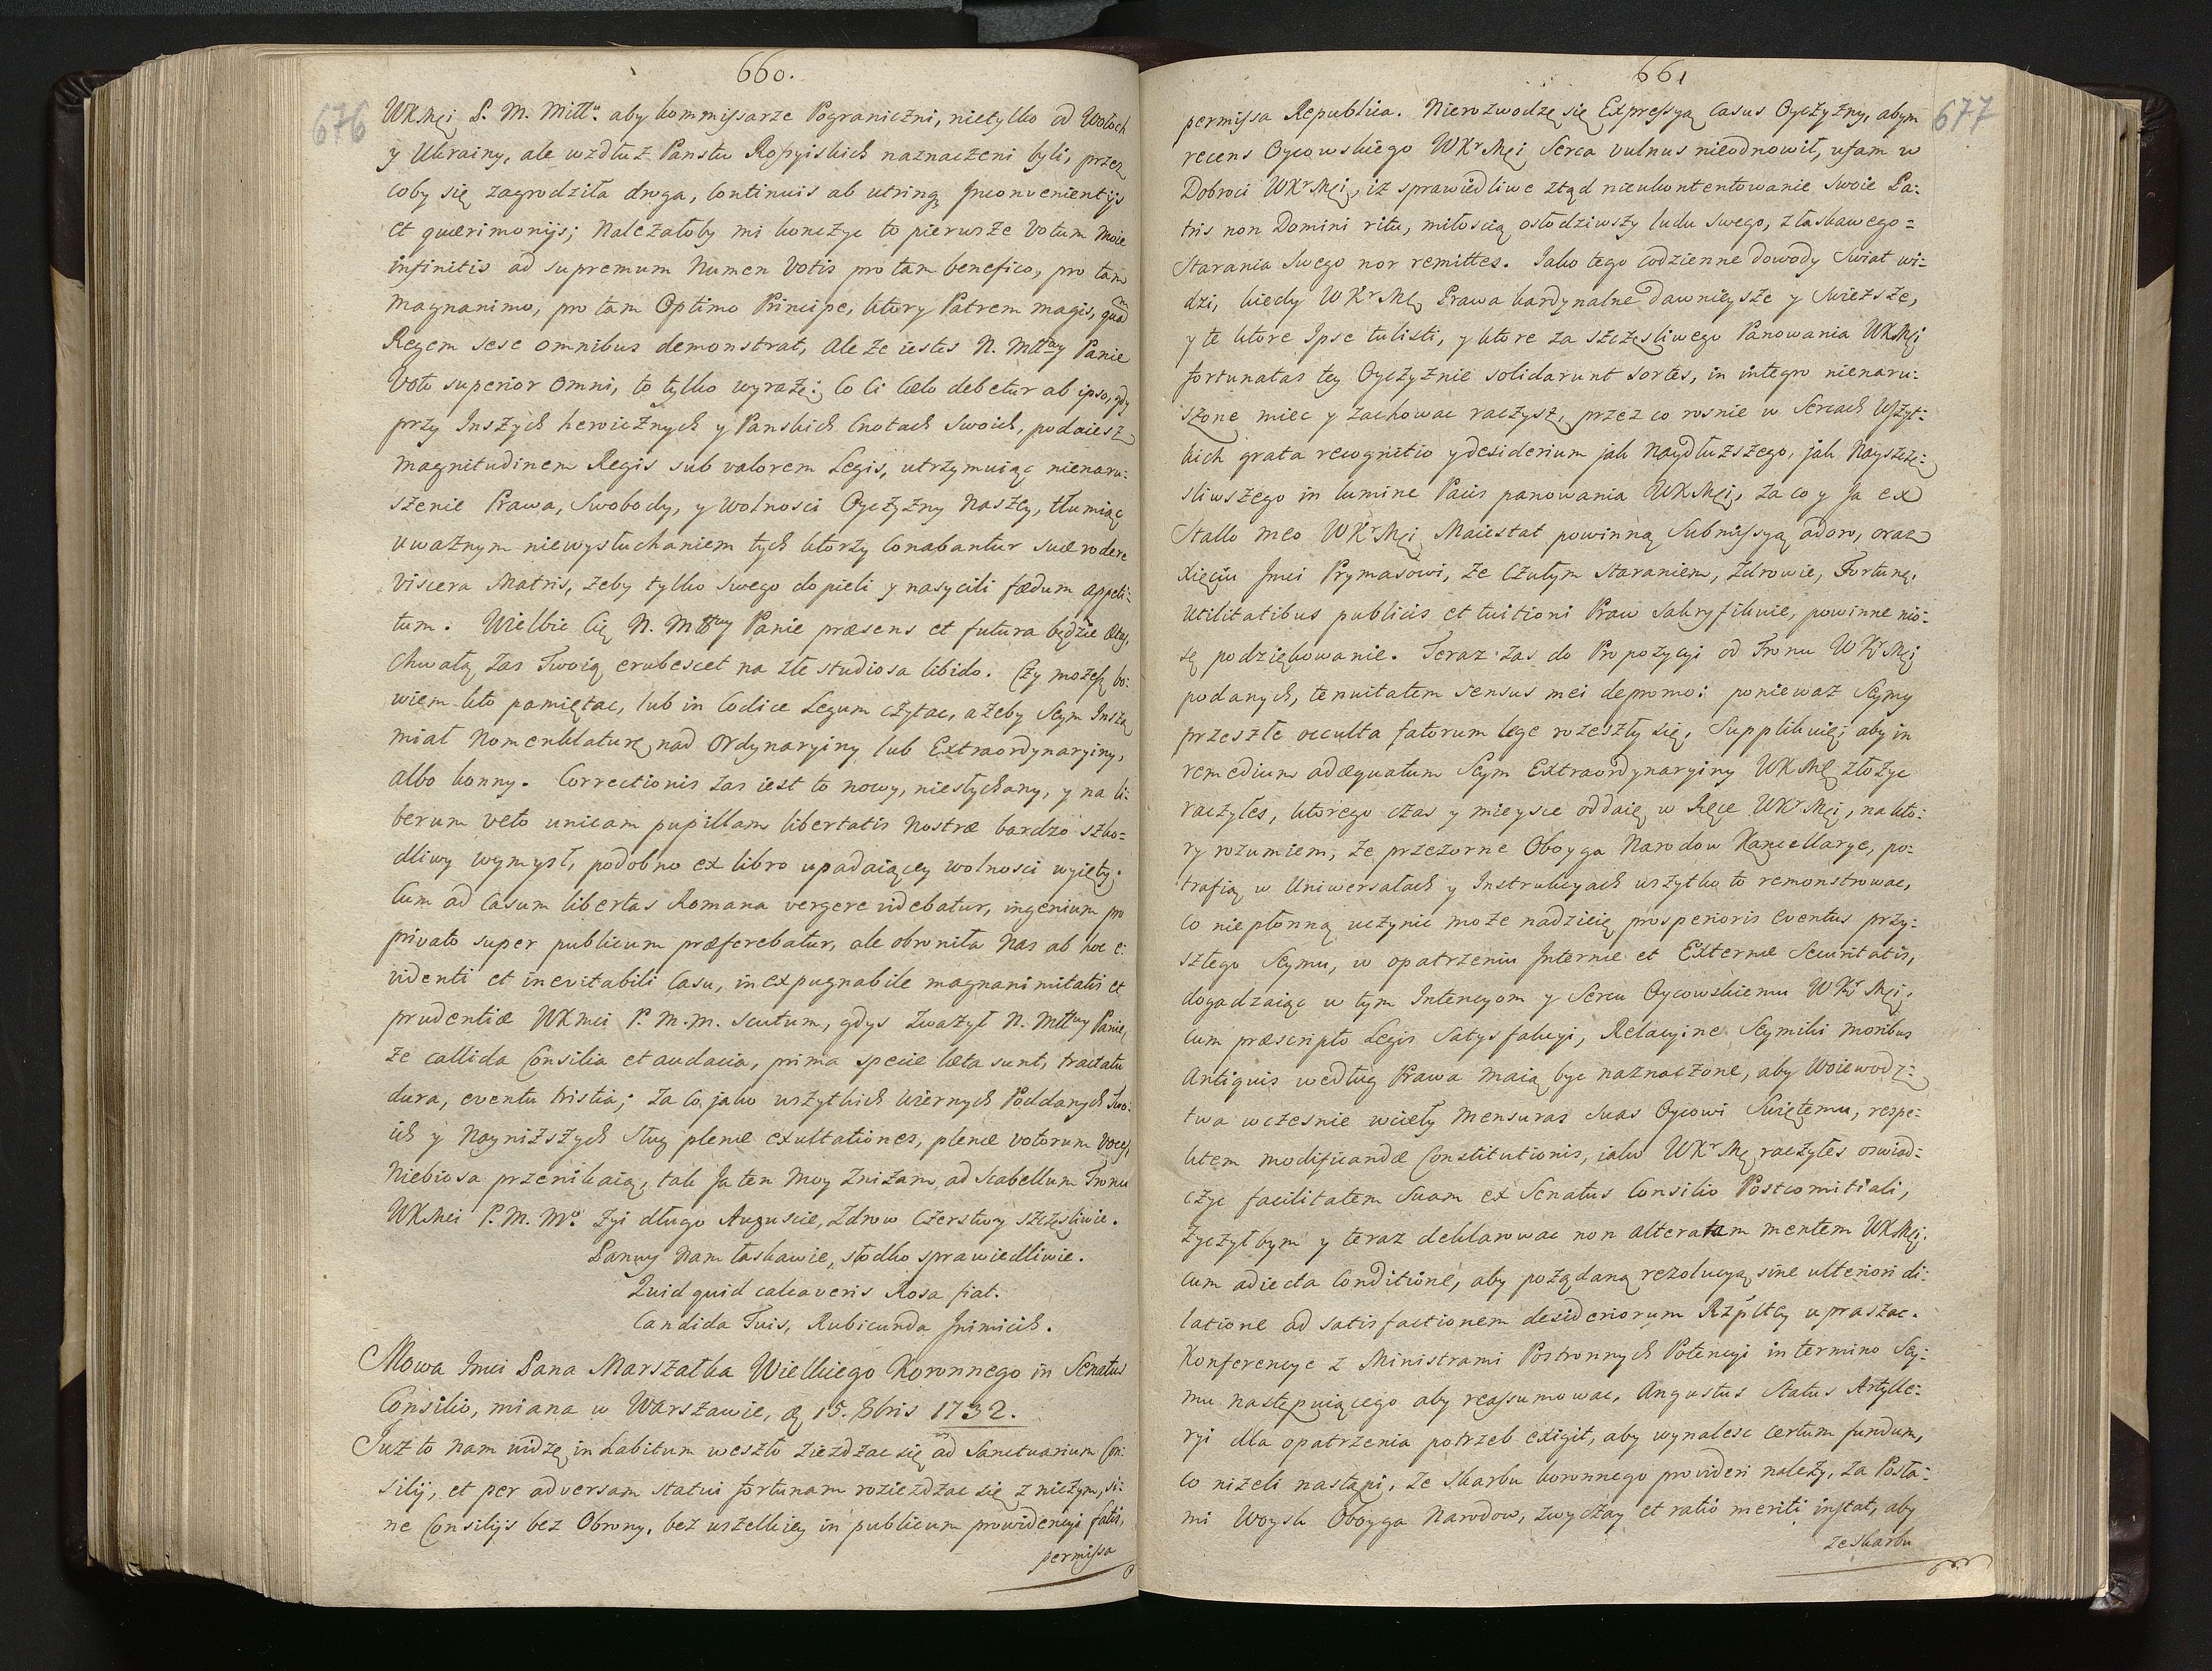 660.
676
WKMci P. M. Mttu. aby kommissarze Pograniczni, nietylko od Wołoch
y Ukrainy, ale wzdłuż Panstw Rossyiskich naznaczeni byli, przez
coby się zagrodziła droga, continuis ab utrinq Inconvenientijs
et quærimonijs; Należałoby mi konczyc to pierwsze Votum moie
infinitis ad supremum Numen Votis pro tam benefico, pro tam
magnanimo, pro tam Optimo Principe, ktory Patrem magis, quam
Regem sese omnibus demonstrat, Ale że iestes N. Mttwy Panie
Voto superior omni, to tylko wyrażę: Co Ci Cælo debetur ab ipso, gdy
przy Inszych heroicznych y Panskich Cnotach Swoich, podaiesz
magnitudinem Regis sub valorem Legis, utrzymuiąc nienaru:
szenie Prawa, Swobody, y Wolnosci Oyczyzny Naszey, tłumiąc
uważnym niewysłuchaniem tych ktorzy Conabantur suæ rodere
Viscera Matris, żeby tylko swego dopieli y nasycili fœdum appeti:
tum. Wielbic Cię N. Mttwy Panie præsens et futura będzie ætas,
Chwałą zas Twoią erubescet na złe studiosa libido. Czy możesz bo:
wiem kto pamiętac, lub in Codice Legum czytac, ażeby Seym Inszą
miał Nomenklaturę nad Ordynaryiny lub Extraordynaryiny,
albo konny. Correctionis zas iest to nowy, niesłychany, y na li:
berum veto unicam pupillam libertatis Nostræ bardzo szko=
dliwy wymysł, podobno ex libro upadaiącey wolnosci wyięty.
Cum ad Casum libertas Romana vergere videbatur, ingenium pro
privato super publicum præferebatur, ale obroniła Nas ab hoc e:
videnti et inevitabili Casu, inexpugnabile magnanimitatis et
prudentiæ WKmci P. M. m. scutum, gdys zwazył N. Mttwy Panie,
że callida Consilia et audacia, prima specie læta sunt, tractatu
dura, eventu tristia; Za Co jako wszytkich wiernych Poddanych Two:
ich y Nayniższych sług plenæ exultationes, plenæ votorum voces,
Niebiosa przenikaią, tak Ja ten Moy zniżam ad Scabellum Tronu
WKMci P. M. Mo. Zyi długo Auguscie, Zdrow Czerstwy szczęsliwie.
Panuy Nam łaskawie, słodko sprawiedliwie.
Quid quid calcaveris Rosa fiat.
Candida Tuis, Rubicunda Inimicis.
Mowa Jmci Pana Marszałka Wielkiego Koronnego in Senatus
Consilio, miana w Warszawie, d. 15. 8bris 1732.
Juz to Nam widzę in habitum weszło zieżdzac się ad Sanctuarium Con:
silij, et per adversam statui fortunam rozieżdzac się z niczym, si:
ne Consilijs bez Obrony, bez wszelkiey in publicum prowidencyi fatis,
permissa
661
677
permissa Republica. Nierozwodzę się Expressyą Casus Oyczyzny, abym
recens Oycowskiego WKrMci Serca vulnus nieodnowił, ufam w
Dobroci WKrMci, iż sprawiedliwe ztąd nieukontentowanie swoie Pa:
tris non Domini ritu, miłoscią osłodziwszy ludu swego, z łaskawego=
Starania Swego nor remittes. Jako tego codzienne dowody Swiat wi:
dzi, kiedy WKrMc Prawa kardynalne dawnieysze y swieższe,
y te ktore Ipse tulisti, y ktore za szczęsliwego Panowania WKMci
fortunatas tey Oyczyznie solidarunt sortes, in integro nienaru:
szone miec y zachowac raczysz, przez co rosnie w Sercach Wszyt:
kich grata recognitio y desiderium jak Naydłuższego, jak Nayszczę:
sliwszego in lumine Pacis panowania WKMci, za co y Ja ex
Stallo meo WKrMci Maiestat powinną Submissyą adoro, oraz
Xięciu Jmci Prymasowi, że Czułym staraniem, Zdrowie, Fortunę,
Utilitatibus publicis et tuitioni Praw Sakryfikuie, powinne nio:
sę podziękowanie. Teraz zas do Propozycyi od Tronu WKrMci
podanych, tenuitatem sensus mei depromo: poniewaz Seymy
przeszłe occulta fatorum lege rozeszły się. Supplikuię aby in
remedium adæquatum Seym Extraordynaryiny WKMc złożyc
raczyłes, ktorego czas y mieysce oddaię w Ręce WKrMci, na kto:
ry rozumiem, że przezorne Oboyga Narodow Kancellarye, po:
trafią w Uniwersałach y Instrukcyach wszytko to remonstrowac,
co niepłonną uczynic może nadzieię prosperioris eventus przy:
szłego Seymu, w opatrzeniu Internæ et Externæ Securitatis,
dogadzaiąc w tym Intencyom y Sercu Oycowskiemu WKrMci,
Cum præscripto Legis Satysfakcyi, Relacyine Seymiki moribus
Antiquis według Prawa maią byc naznaczone, aby Woiewodz:
twa wczesnie wzieły Mensuras suas Oycowi Swiętemu, respe:
ktem modificandæ Constitutionis, iako WKrMc raczyłes oswiad:
czyc facilitatem Suam ex Senatus Consilio Postcomitiali,
Zyczyłbym y teraz deklarowac non alteratam mentem WKMci.
Cum adiecta Conditione, aby pożądaną rezolucyą sine ulteriori di:
latione ad satisfactionem desideriorum Rzpltey upraszac.
Konferencye z Ministrami Postronnych Potencyi in termino Sey:
mu następuiącego aby reassumowac, Angustus Status Artylle:
ryi dla opatrzenia potrzeb exigit, aby wynalesc certum fundum,
co niżeli nastąpi, że Skarbu koronnego provideri należy, za Posła:
mi Woysk Oboyga Narodow, zwyczay et ratio meriti instat, aby
ze Skarbu